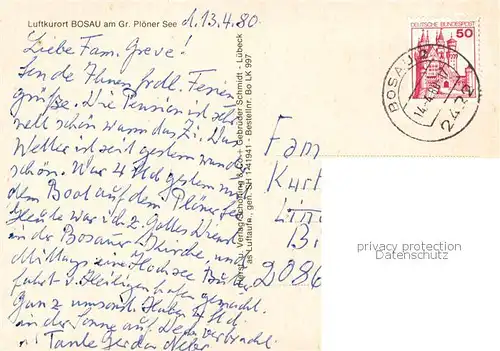 Luftkurort BOSAU am Gr. Plöner See
d. 13.4.80
Liebe Fam. Greve!
Sende Ihnen frdl. Ferien
grüße. Die Pension ist sehr
nett schön warm das Zi. Das
Wetter ist seit gestern wunder
schön. War 4 Std gestern mit
dem Boot auf dem Plöner See
Heute war ich z. Gottes Dienst
in der Bosauer Kirche, und
Mittags eine Hochsee Butter
fahrt v. Heiligenhafen gemacht.
Ganz umsonst. Haben 4 Std.
in der Sonne auf Deck verbracht.
Tante Gerda
Verlag Schöning & Co + Gebrüder Schmidt - Lübeck
as Luftaufn., gen. SH 1-41941 - Bestellnr. Bo LK 997
DEUTSCHE BUNDESPOST
50
BOSAU
2422
Fam
Kurt
2086
privacy protection
Datenschutz